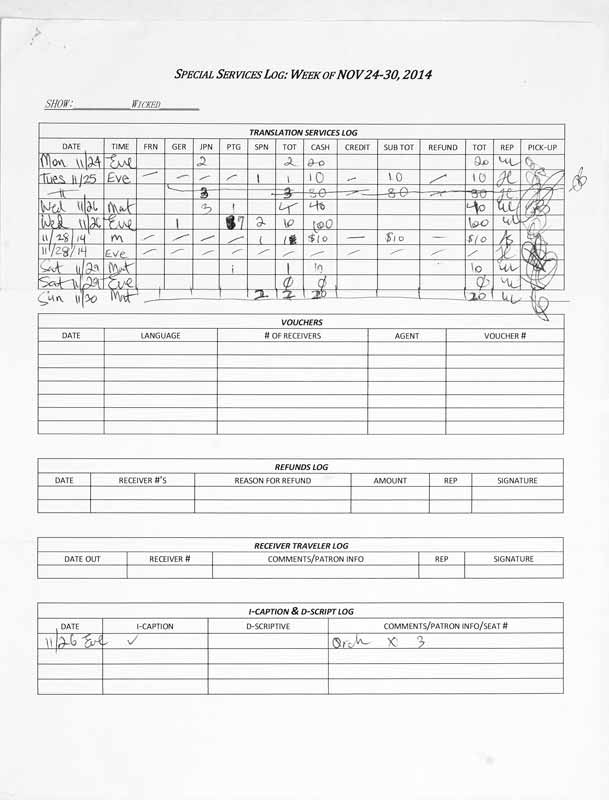 SPECIAL SERVICES LOG: WEEK OF NOV 24-30, 2014
SHOW: WICKED
TRANSLATION SERVICES LOG
DATE TIME FRN GER JPN PTG SPN TOT CASH CREDIT SUB TOT REFUND TOT REP PICK-UP
Mon 11/24 Eve 2 2 20 20
Tues 11/25 Eve — — — — 1 1 10 — 10 — 10
" 3 3 30 — 30 — 30
Wed 11/26 Mat 3 1 4 40 40
Wed 11/26 Eve 1 7 2 10 100 100
11/28/14 m — — — — 1 1 $10 — $10 — $10
11/28/14 Eve — — — — — — — — — — —
Sat 11/29 Mat 1 1 10 10
Sat 11/29 Eve Ø Ø Ø
Sun 11/30 Mat 2 2 20 20
VOUCHERS
DATE LANGUAGE # OF RECEIVERS AGENT VOUCHER #
REFUNDS LOG
DATE RECEIVER #'S REASON FOR REFUND AMOUNT REP SIGNATURE
RECEIVER TRAVELER LOG
DATE OUT RECEIVER # COMMENTS/PATRON INFO REP SIGNATURE
I-CAPTION & D-SCRIPT LOG
DATE I-CAPTION D-SCRIPTIVE COMMENTS/PATRON INFO/SEAT #
11/26 Eve ✓ Orch x 3